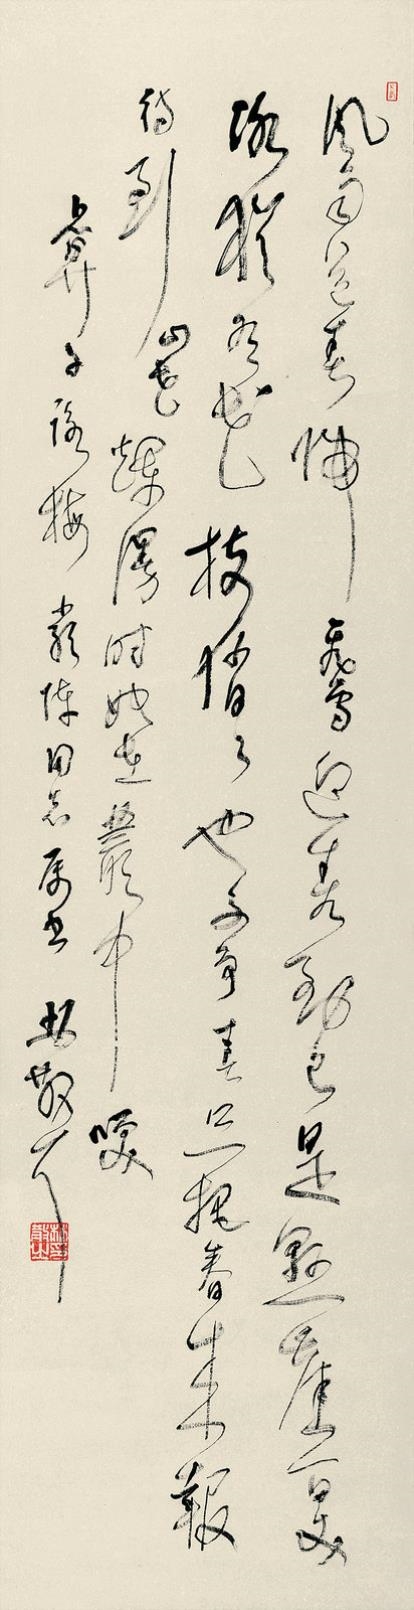 風雨送春歸飛雪迎春到已是懸崖百丈
冰猶有花枝俏々也不爭春只把春來報
待到山花爛漫时她在叢中笑
卜算子詠梅 同志属书 林散耳